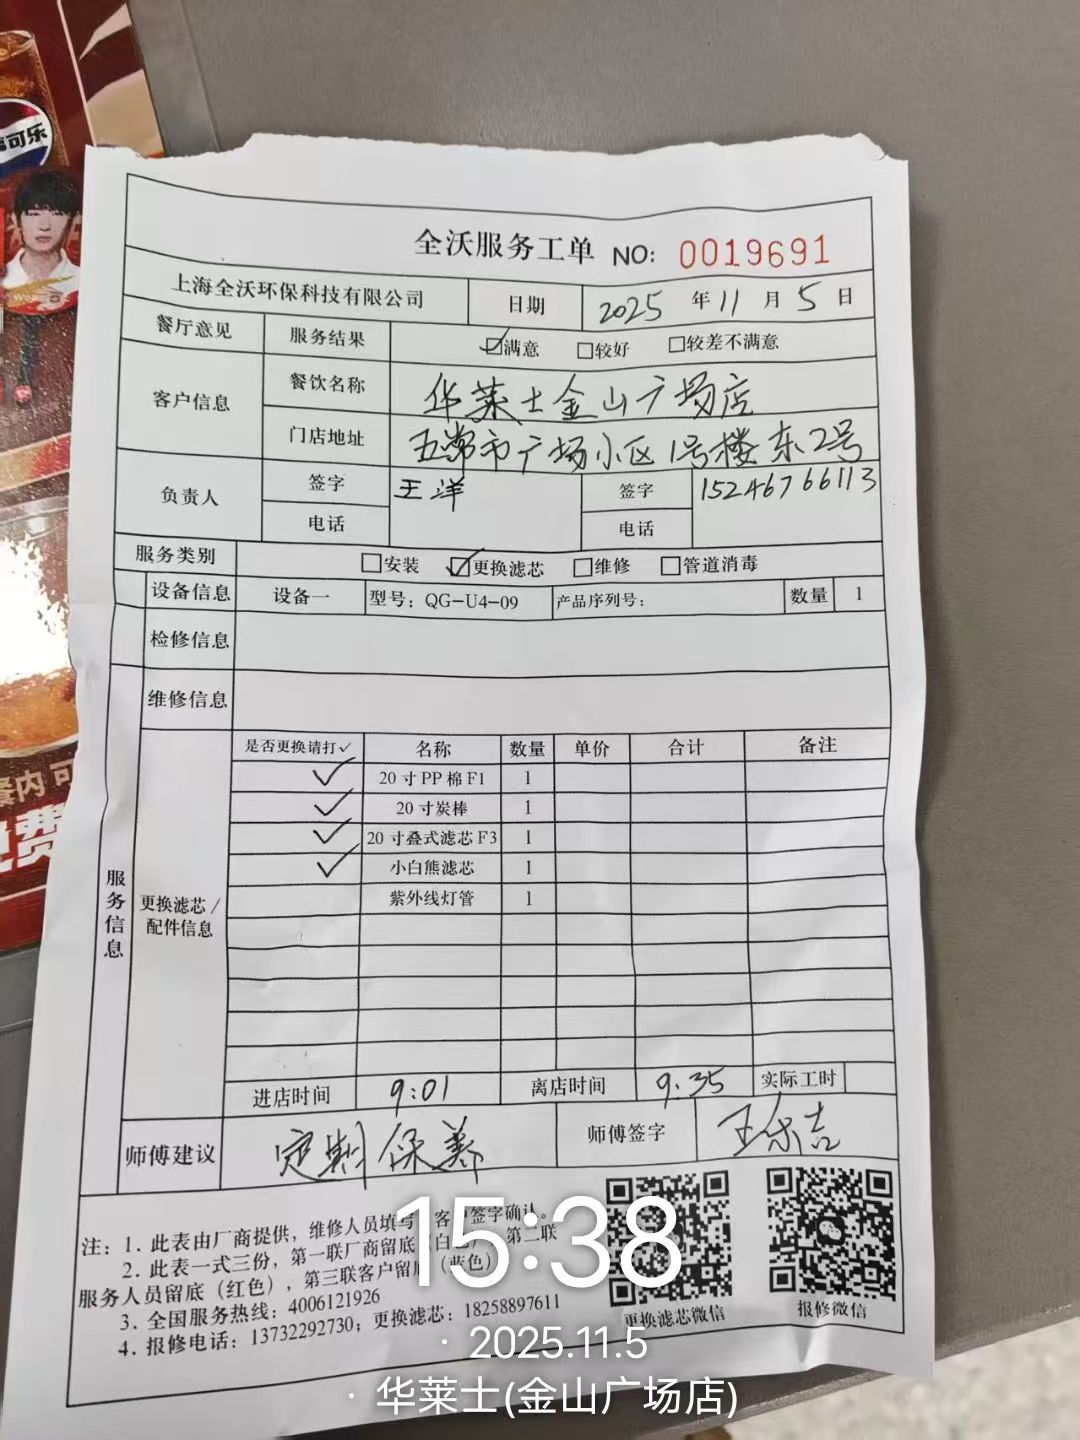 可乐
餐内可
费
全沃服务工单 NO: 0019691
上海全沃环保科技有限公司 日期 2025 年 11 月 5 日
餐厅意见 服务结果 ☑满意 □较好 □较差不满意
客户信息 餐饮名称 华莱士金山广场店
门店地址 五常市广场小区1号楼东2号
负责人 签字 王洋 签字 15246766113
电话 电话
服务类别 □安装 ☑更换滤芯 □维修 □管道消毒
设备信息 设备一 型号：QG-U4-09 产品序列号： 数量 1
检修信息
维修信息
服务信息
更换滤芯/
配件信息
是否更换请打✓ 名称 数量 单价 合计 备注
✓ 20寸PP棉F1 1
✓ 20寸炭棒 1
✓ 20寸叠式滤芯F3 1
✓ 小白熊滤芯 1
紫外线灯管 1
进店时间 9:01 离店时间 9:35 实际工时
师傅建议 定期保养 师傅签字
注：1. 此表由厂商提供，维修人员填写 客户签字确认。
2. 此表一式三份，第一联厂商留底（白色） 第二联
服务人员留底（红色），第三联客户留底（蓝色）
3. 全国服务热线：4006121926
4. 报修电话：13732292730；更换滤芯：18258897611
更换滤芯微信 报修微信
15:38
· 2025.11.5
· 华莱士(金山广场店)